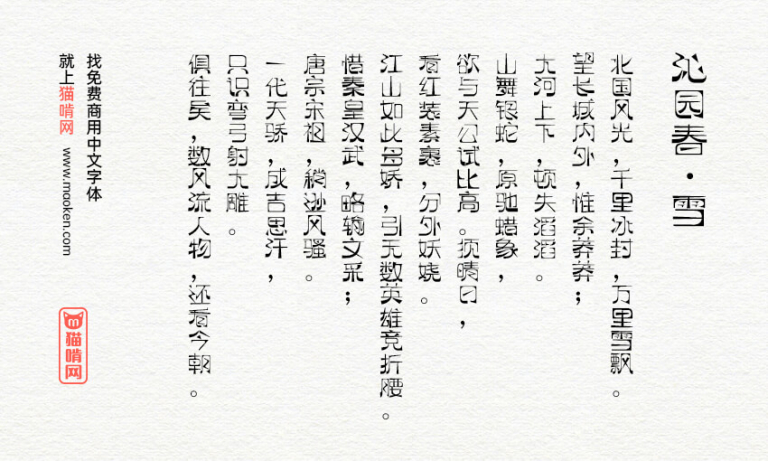 沁园春·雪
北国风光，千里冰封，万里雪飘。
望长城内外，惟余莽莽；
大河上下，顿失滔滔。
山舞银蛇，原驰蜡象，
欲与天公试比高。须晴日，
看红装素裹，分外妖娆。
江山如此多娇，引无数英雄竞折腰。
惜秦皇汉武，略输文采；
唐宗宋祖，稍逊风骚。
一代天骄，成吉思汗，
只识弯弓射大雕。
俱往矣，数风流人物，还看今朝。
找免费商用中文字体
就上猫啃网 www.mooken.com
猫啃网